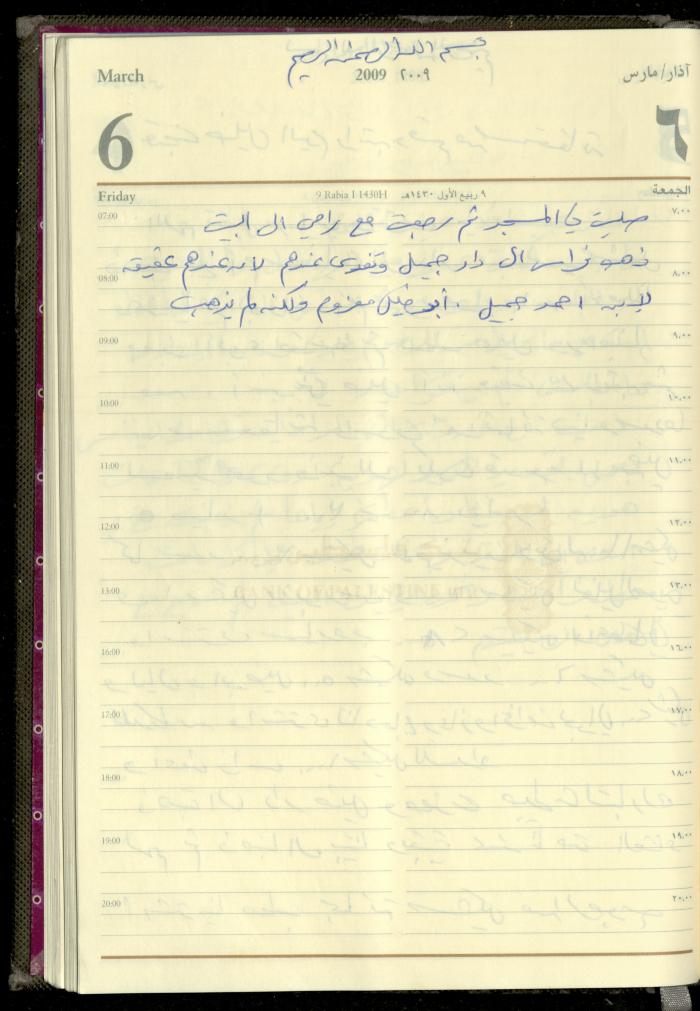 بسم الله الرحمن الرحيم
March
2009 ٢٠٠٩
آذار/مارس
6
٦
Friday
9 Rabia I 1430H
٩ ربيع الأول ١٤٣٠هـ
الجمعة
07:00
٧,٠٠
صليت في المسجد ثم رجعت مع رامي الى البيت
ذهبو فراس الى دار جميل وتغدى عندهم لانه عندهم عقيقه
08:00
٨,٠٠
لابنه احمد جميل . أبو معزوم ولكنه لم يذهب
09:00
٩,٠٠
10:00
١٠,٠٠
11:00
١١,٠٠
12:00
١٢,٠٠
13:00
١٣,٠٠
16:00
١٦,٠٠
17:00
١٧,٠٠
18:00
١٨,٠٠
19:00
١٩,٠٠
20:00
٢٠,٠٠